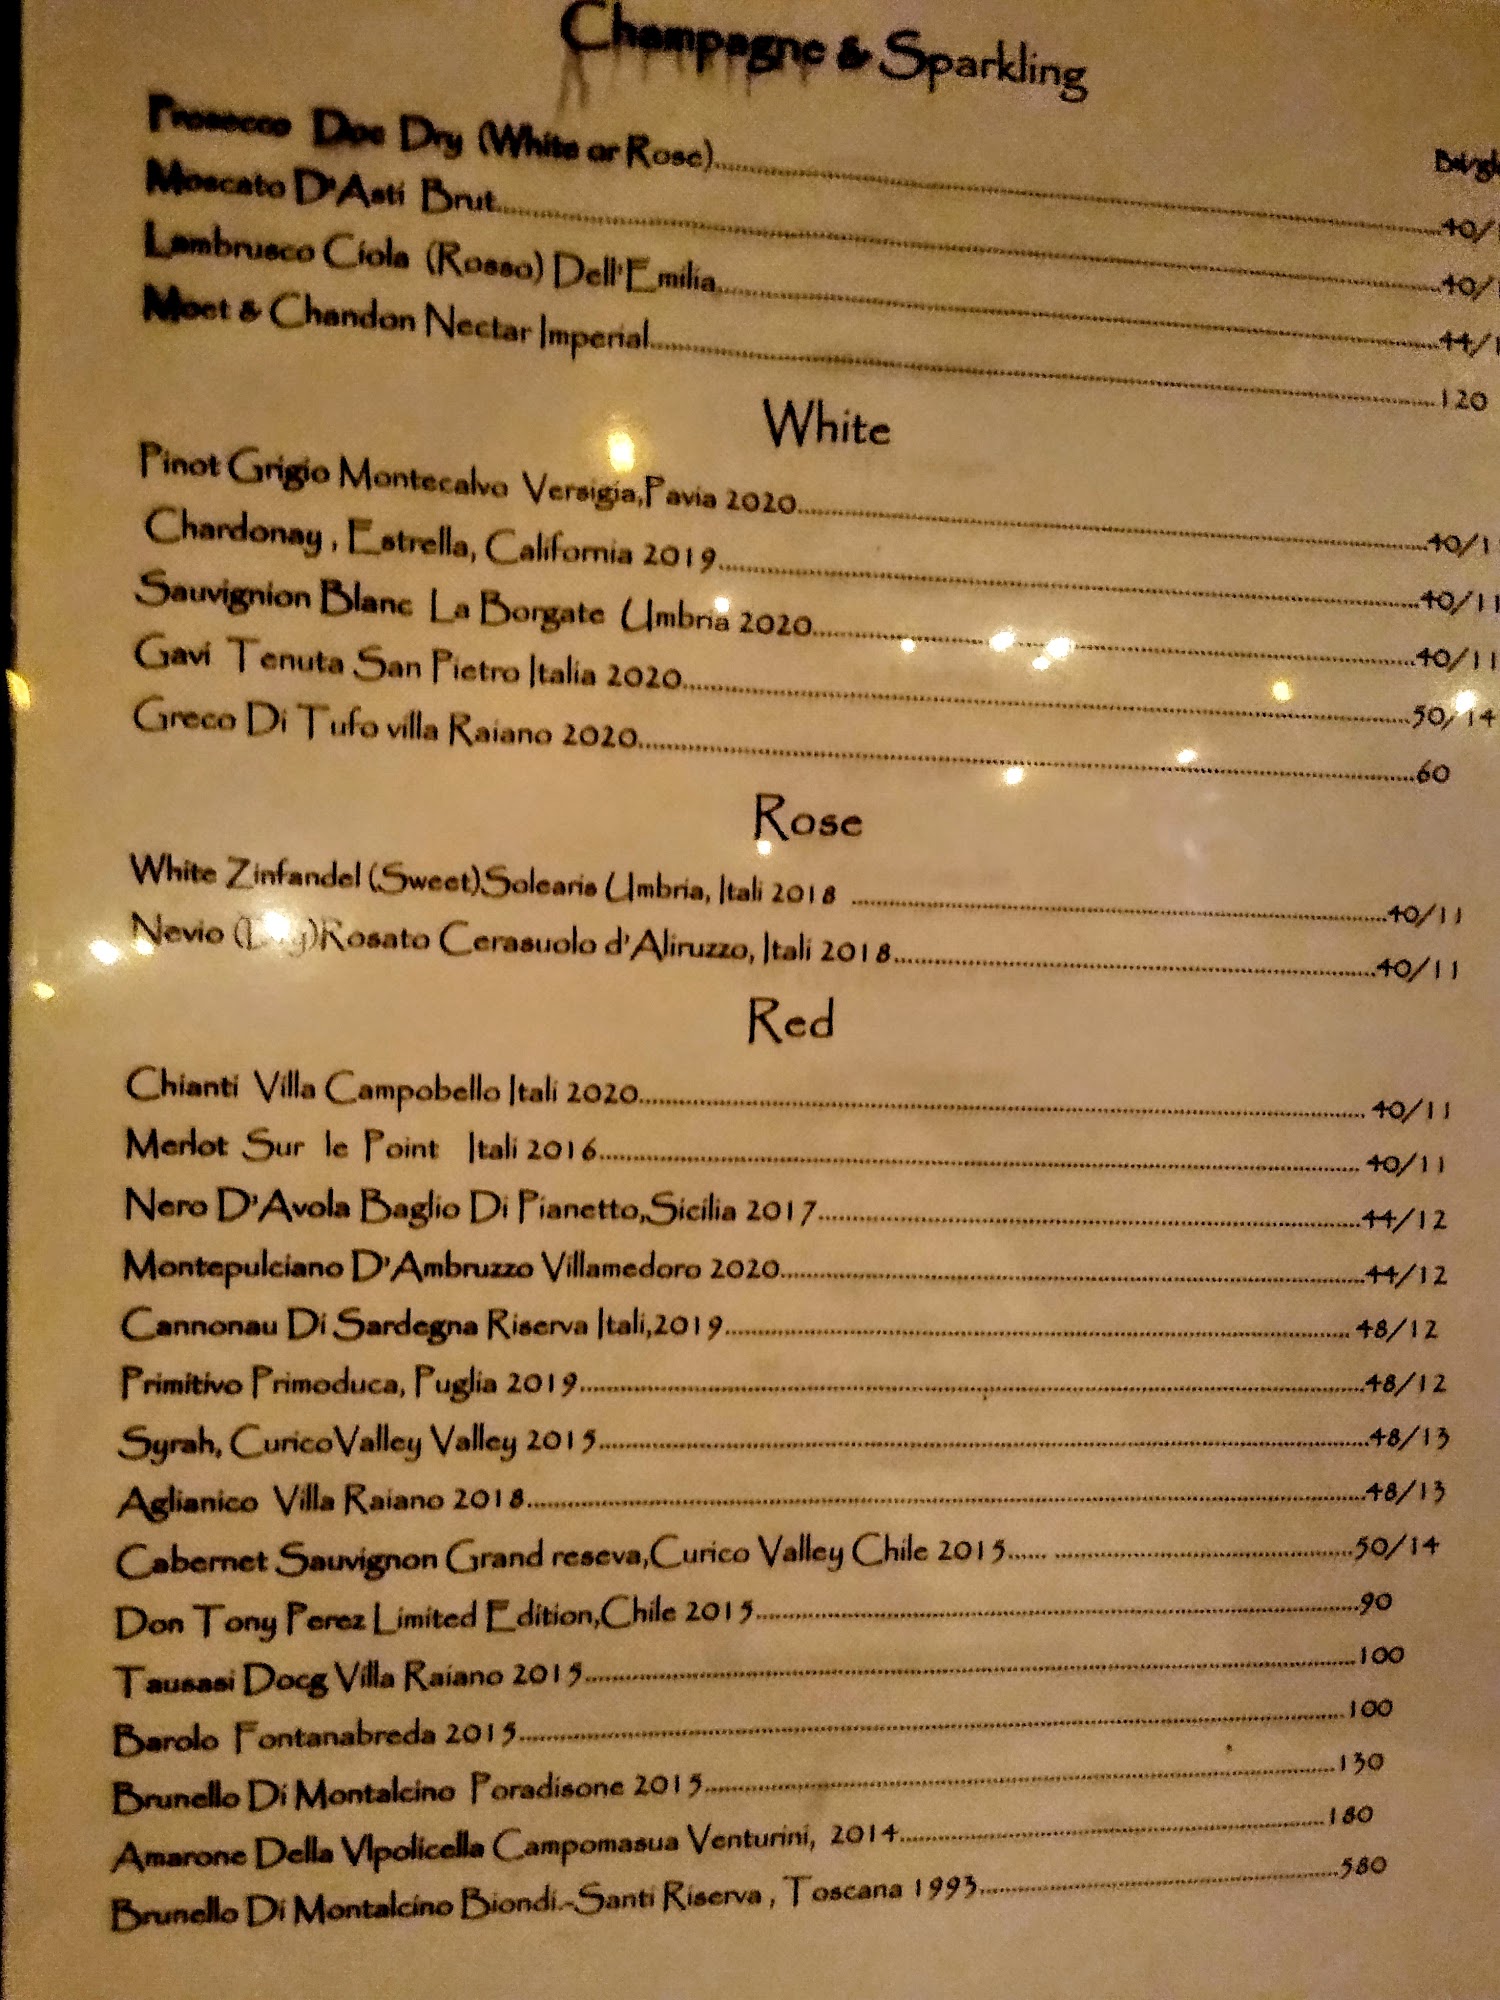 Champagne & Sparkling
Prosecco Doc Dry (White or Rose)
Moscato D'Asti Brut........40/1
Lambrusco Ciola (Rosso) Dell'Emilia........44/1
Moet & Chandon Nectar Imperial........120
White
Pinot Grigio Montecalvo Versigia,Pavia 2020........40/11
Chardonay , Estrella, California 2019........40/11
Sauvignion Blanc La Borgate Umbria 2020........40/11
Gavi Tenuta San Pietro Italia 2020........50/14
Greco Di Tufo villa Raiano 2020........60
Rose
White Zinfandel (Sweet)Solearis Umbria, Itali 2018 ........40/11
Nevio (Dry)Rosato Cerasuolo d'Aliruzzo, Itali 2018........40/11
Red
Chianti Villa Campobello Itali 2020........40/11
Merlot Sur le Point Itali 2016........40/11
Nero D'Avola Baglio Di Pianetto,Sicilia 2017........44/12
Montepulciano D'Ambruzzo Villamedoro 2020........44/12
Cannonau Di Sardegna Riserva Itali,2019........48/12
Primitivo Primoduca, Puglia 2019........48/12
Syrah, CuricoValley Valley 2015........48/13
Aglianico Villa Raiano 2018........48/13
Cabernet Sauvignon Grand reseva,Curico Valley Chile 2015...... ........50/14
Don Tony Perez Limited Edition,Chile 2015........90
Tausasi Docg Villa Raiano 2015........100
Barolo Fontanabreda 2015........100
Brunello Di Montalcino Poradisone 2015........130
Amarone Della Vlpolicella Campomasua Venturini, 2014........180
Brunello Di Montalcino Biondi.-Santi Riserva , Toscana 1993........580